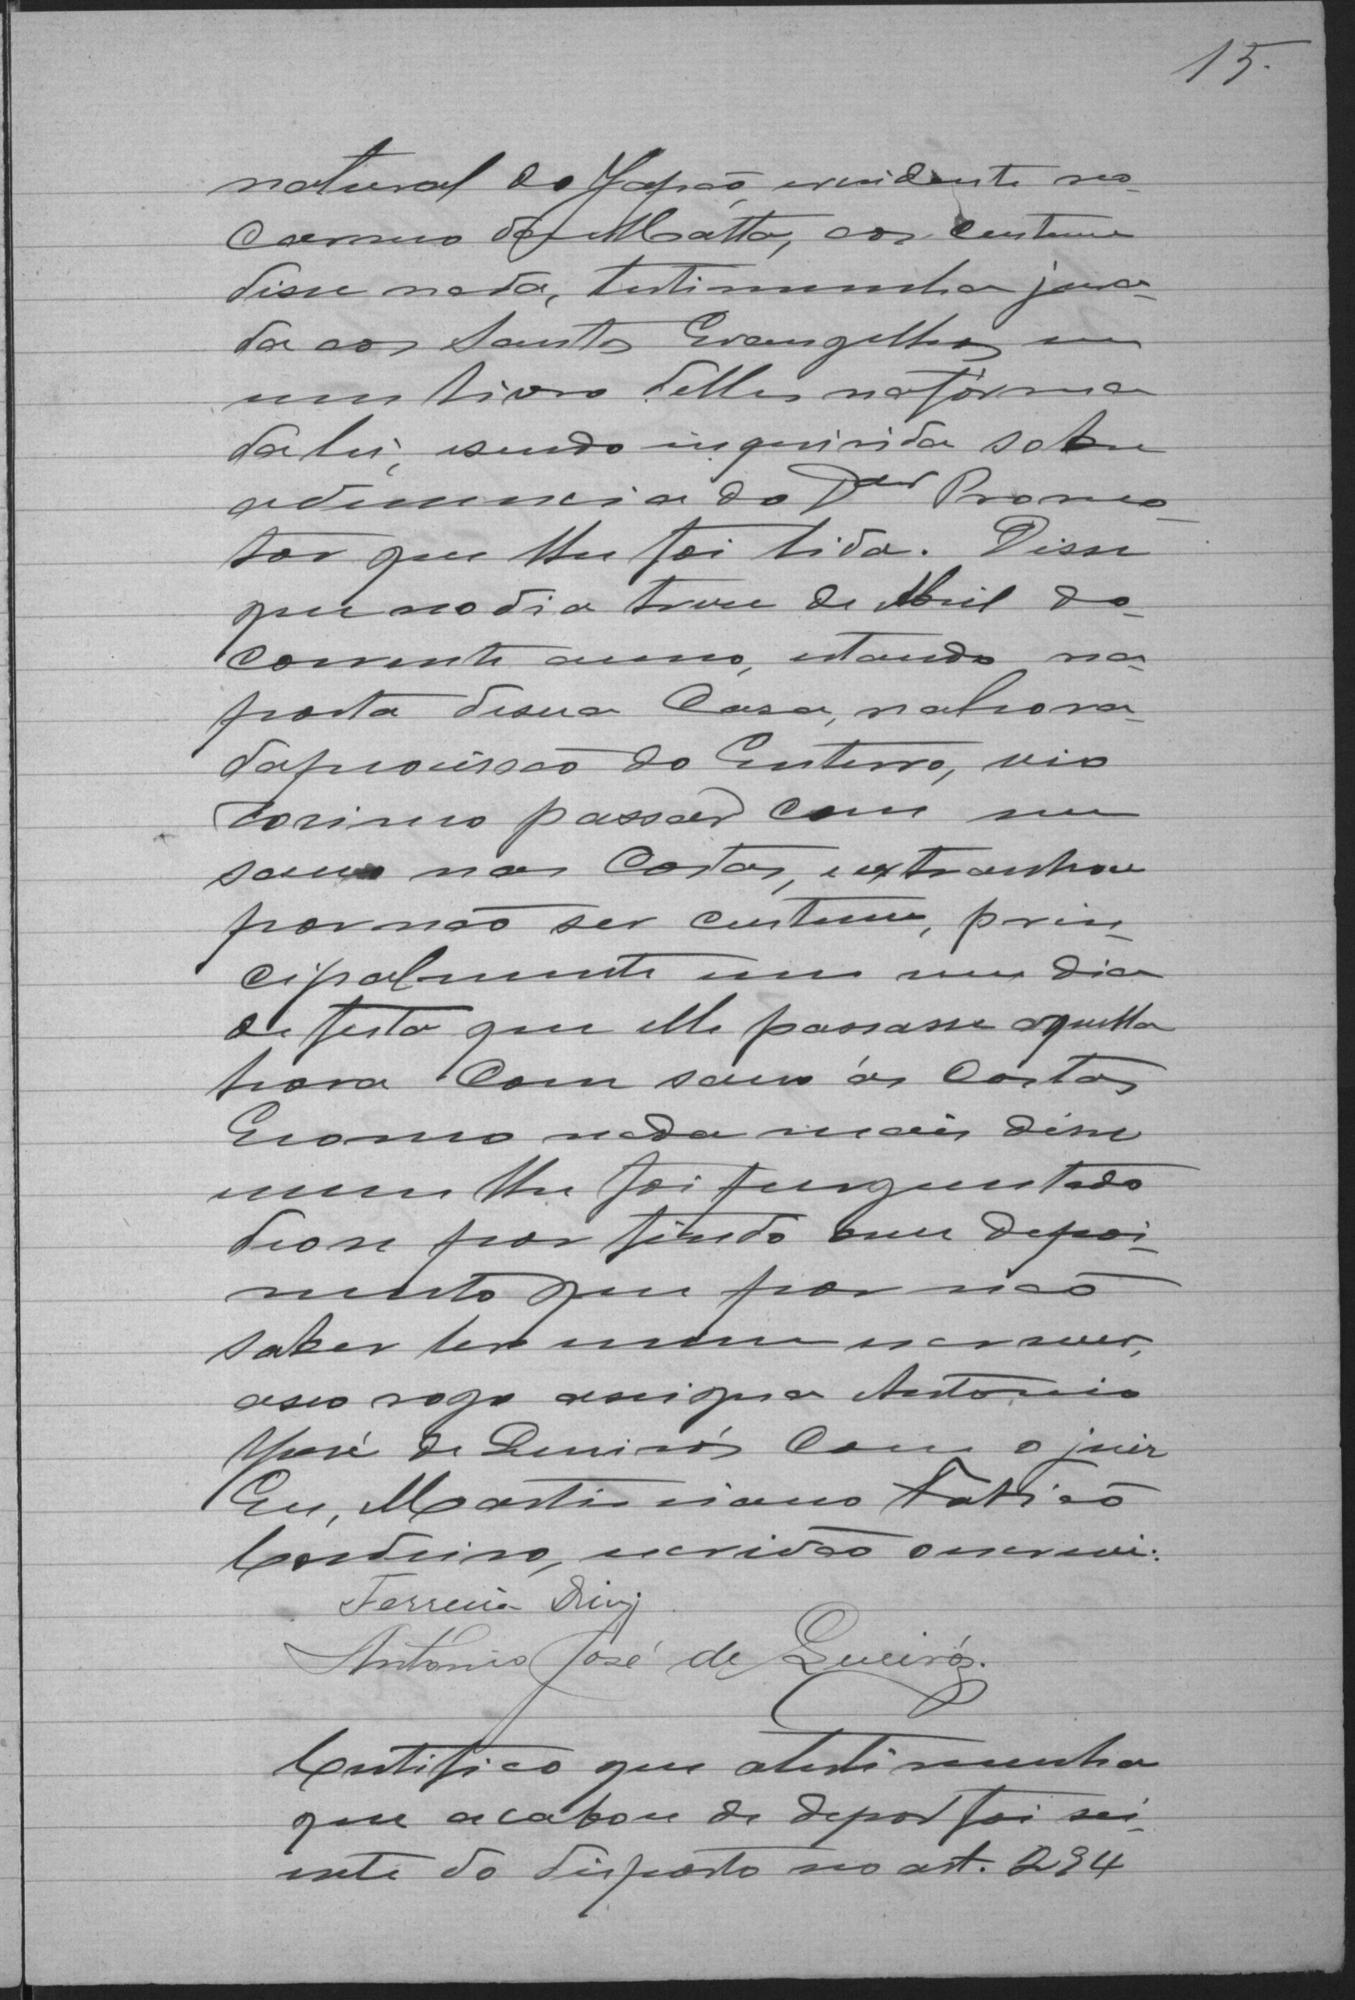 15.
natural do Japão, e residente no
Carmo da Matta, aos custume
disse nada, testimunha jura-
da aos Santos Evangelhos em
um livro delles na fórma
da lei, e sendo inquirida sobre
a denuncia do Dor Promo-
tor que lhe foi lida. Disse
que no dia treze de Abril do
corrente anno, estando na
porta de sua Casa, na hora
da procissão do Enterro, vio
passar com um
sacco nas Costas, e extranhou
por não ser custume, prin-
cipalmente em um dia
de festa que elle passasse aquella
hora com sacco ás Costas
E como nada mais disse
nem lhe foi perguntado
deose por findo seu depoi-
mento que por não
saber ler nem escrever,
a seo rogo assigna Antonio
José de Queirós com o juiz
Eu, Martiniano
Cordeiro, escrivão o escrevi.
Ferreira Diniz
Antonio José de Queirós.
Certifico que a testimunha
que acabou de depor foi sci-
ente do disposto no art. 294